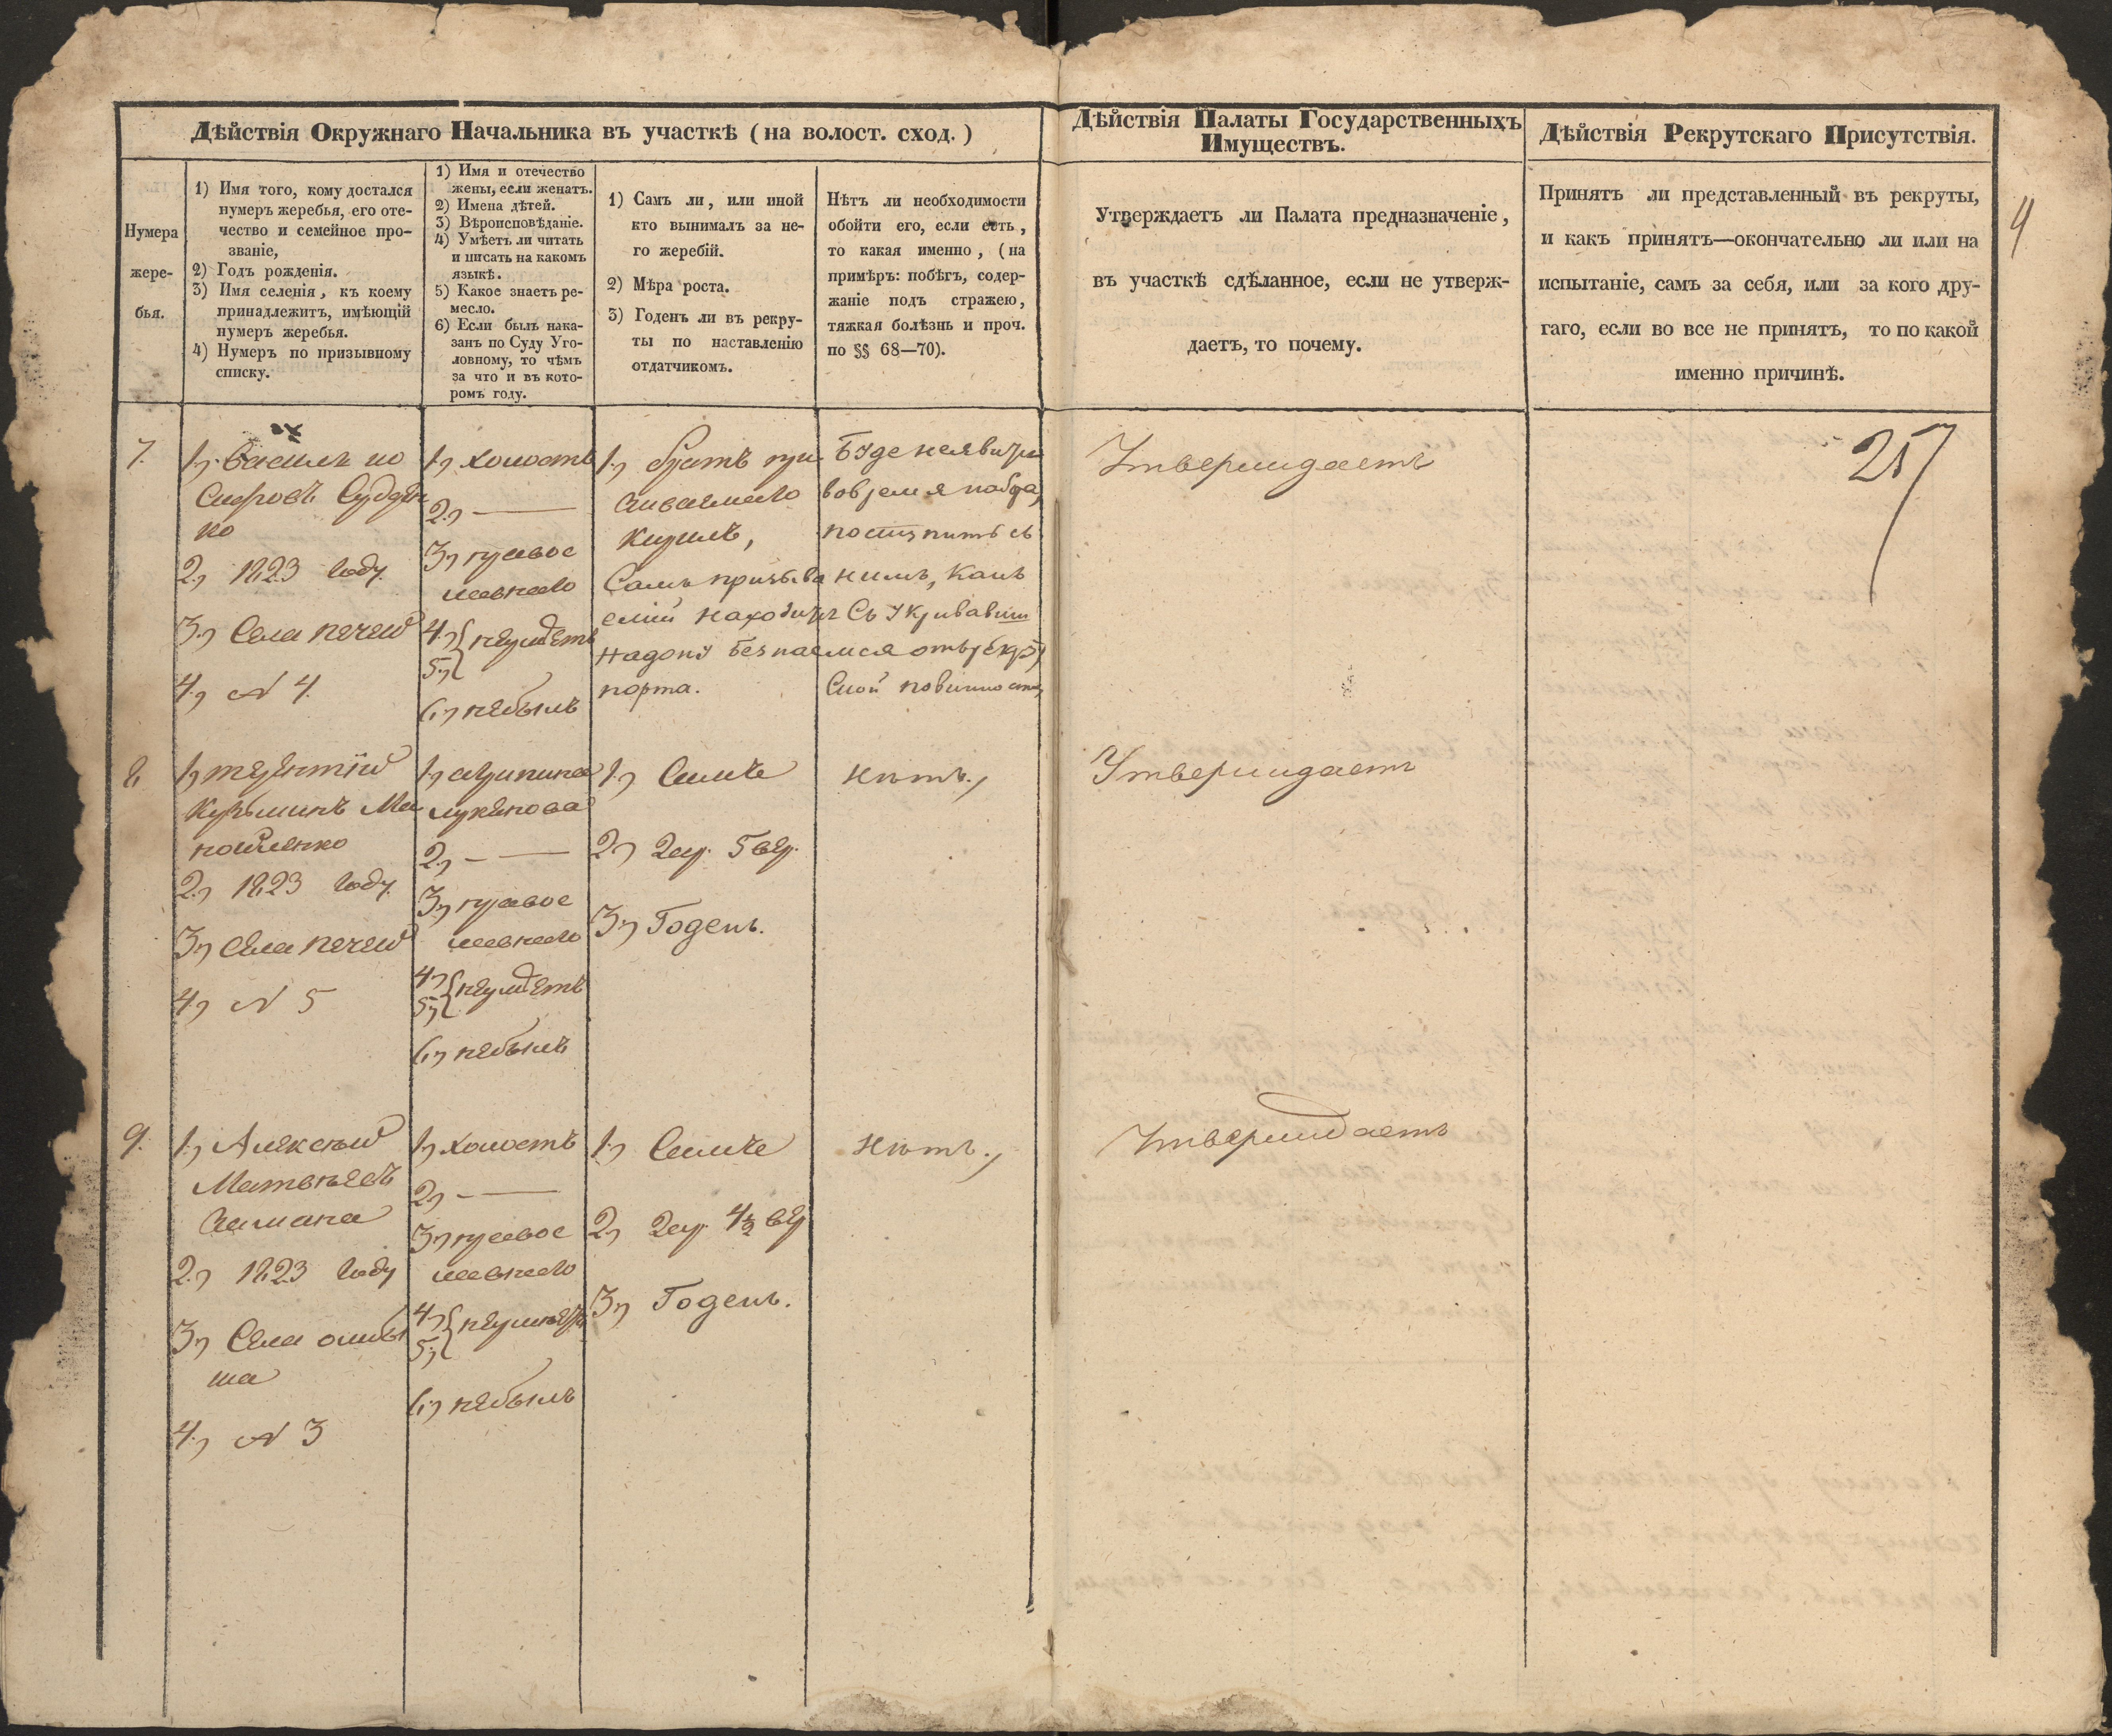 Дѣйствія Окружнаго Начальника въ участкѣ (на волост. сход.)
Дѣйствія Палаты Государственныхъ
Имуществъ.
Дѣйствія Рекрутскаго Присутствія.
Нумера
жере-
бья.
1) Имя того, кому достался
нумеръ жеребья, его оте-
чество и семейное про-
званіе,
2) Годъ рожденія.
3) Имя селенія, къ коему
принадлежитъ, имѣющій
нумеръ жеребья.
4) Нумеръ по призывному
списку.
1) Имя и отечество
жены, если женатъ.
2) Имена дѣтей.
3) Вѣроисповѣданіе.
4) Умѣетъ ли читать
и писать на какомъ
языкѣ.
5) Какое знаетъ ре-
месло.
6) Если былъ нака-
занъ по Суду Уго-
ловному, то чѣмъ
за что и въ кото-
ромъ году.
1) Самъ ли, или иной
кто вынималъ за не-
го жеребій.
2) Мѣра роста.
3) Годенъ ли въ рекру-
ты по наставленію
отдатчикомъ.
Нѣтъ ли необходимости
обойти его, если есть,
то какая именно, (на
примѣръ: побѣгъ, содер-
жаніе подъ стражею,
тяжкая болѣзнь и проч.
по §§ 68—70).
Утверждаетъ ли Палата предназначеніе,
въ участкѣ сдѣланное, если не утверж-
даетъ, то почему.
Принятъ ли представленный въ рекруты,
и какъ принятъ—окончательно ли или на
испытаніе, самъ за себя, или за кого дру-
гаго, если во все не принятъ, то по какой
именно причинѣ.
4
7.
1, Василь
2, 1823 году.
3, Села Печей
4, N 4.
1, холостъ
2, —
3, право
славнаго
4,
5, неумѣетъ
6, небылъ
1, братъ при
зиваемаго
Кирилъ,
Самъ призыва
емій находитъ
надону безпас
порта.
Буде неявитъ
вовремя набора,
поступить съ
нимъ, какъ
съ укривавши
мся отърекрут
ской повинности
Утверждаетъ
257
8,
1, Терентій
Кузьминъ
2, 1823 году.
3, Села Печей
4, N 5
1,
2, —
3, право
славнаго
4,
5, неумѣетъ
6, небылъ
1, Самъ
2, 2 ар. 5 вер.
3, Годенъ.
Нѣтъ.
Утверждаетъ
9.
1, Алексѣй
Матвѣевъ
2, 1823 году
3, Села
4, N 3
1, холостъ
2, —
3, право
славнаго
4,
5, неумѣетъ
6, небылъ
1, Самъ
2, 2 ар. 4½ вер
3, Годенъ.
Нѣтъ.
Утверждаетъ